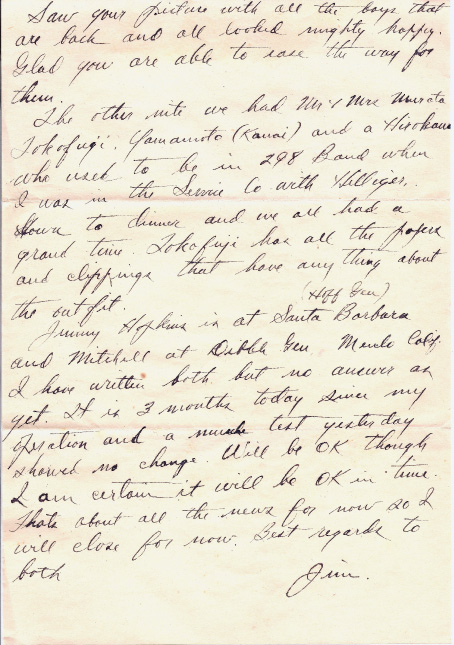 Saw your picture with all the boys that
are back and all looked mighty happy.
Glad you are able to ease the way for
them.
The other nite we had Mr & Mrs Murata
Tokofugi, Yamamoto (Kauai) and a
who used to be in 298 Band when
I was in the Service Co with Hilliger,
down to dinner and we all had a
grand time. Tokofuji has all the papers
and clippings that have any thing about
(Hoff Gen)
the outfit.
Jimmy Hopkins is at Santa Barbara
and Mitchell at Dibble Gen Menlo Calif.
I have written both but no answer as
yet. It is 3 months today since my
operation and a muscle test yesterday
showed no change. Will be OK though
I am certain it will be OK in time.
Thats about all the news for now so I
will close for now. Best regards to
both
Jim.